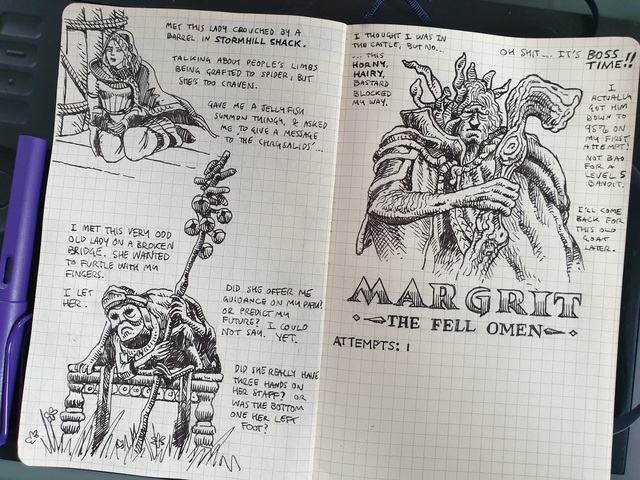 MET THIS LADY CROUCHED BY A
BARREL IN STORMHILL SHACK.
TALKING ABOUT PEOPLE'S LIMBS
BEING GRAFTED TO SPIDER, BUT
SHE'S TOO CRAVEN.
GAVE ME A JELLYFISH
SUMMON THINGY, & ASKED
ME TO GIVE A MESSAGE
TO THE CHRYSALIDS'...
I MET THIS VERY ODD
OLD LADY ON A BROKEN
BRIDGE. SHE WANTED
TO FURTLE WITH MY
FINGERS.
I LET
HER.
DID SHE OFFER ME
GUIDANCE ON MY PATH?
OR PREDICT MY
FUTURE? I COULD
NOT SAY. YET.
DID SHE REALLY HAVE
THREE HANDS ON
HER STAFF? OR
WAS THE BOTTOM
ONE HER LEFT
FOOT?
I THOUGHT I WAS IN
THE CASTLE, BUT NO...
... THIS
HORNY,
HAIRY,
BASTARD
BLOCKED
MY WAY.
OH SHIT... IT'S BOSS
TIME!!
I
ACTUALLY
GOT HIM
DOWN TO
95% ON
MY FIRST
ATTEMPT!
NOT BAD
FOR A
LEVEL 5
BANDIT.
I'LL COME
BACK FOR
THIS OLD
GOAT
LATER.
MARGRIT
THE FELL OMEN
ATTEMPTS: 1